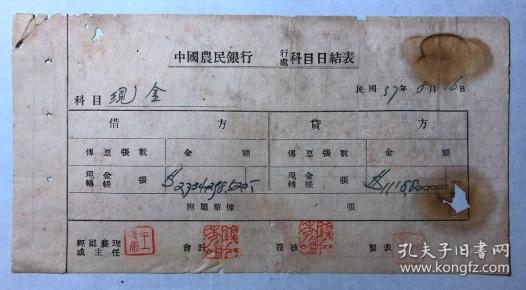 中國農民銀行 行處 科目日結表
民國 37年 8月 16日
科目 現金
借方 貸方
傳票張數 金額 傳票張數 金額
現金 轉帳 張 現金 轉帳 張
附屬單據 張
經副襄理 或主任 會計 覆核 製表
孔夫子旧书网
www.kongfz.com